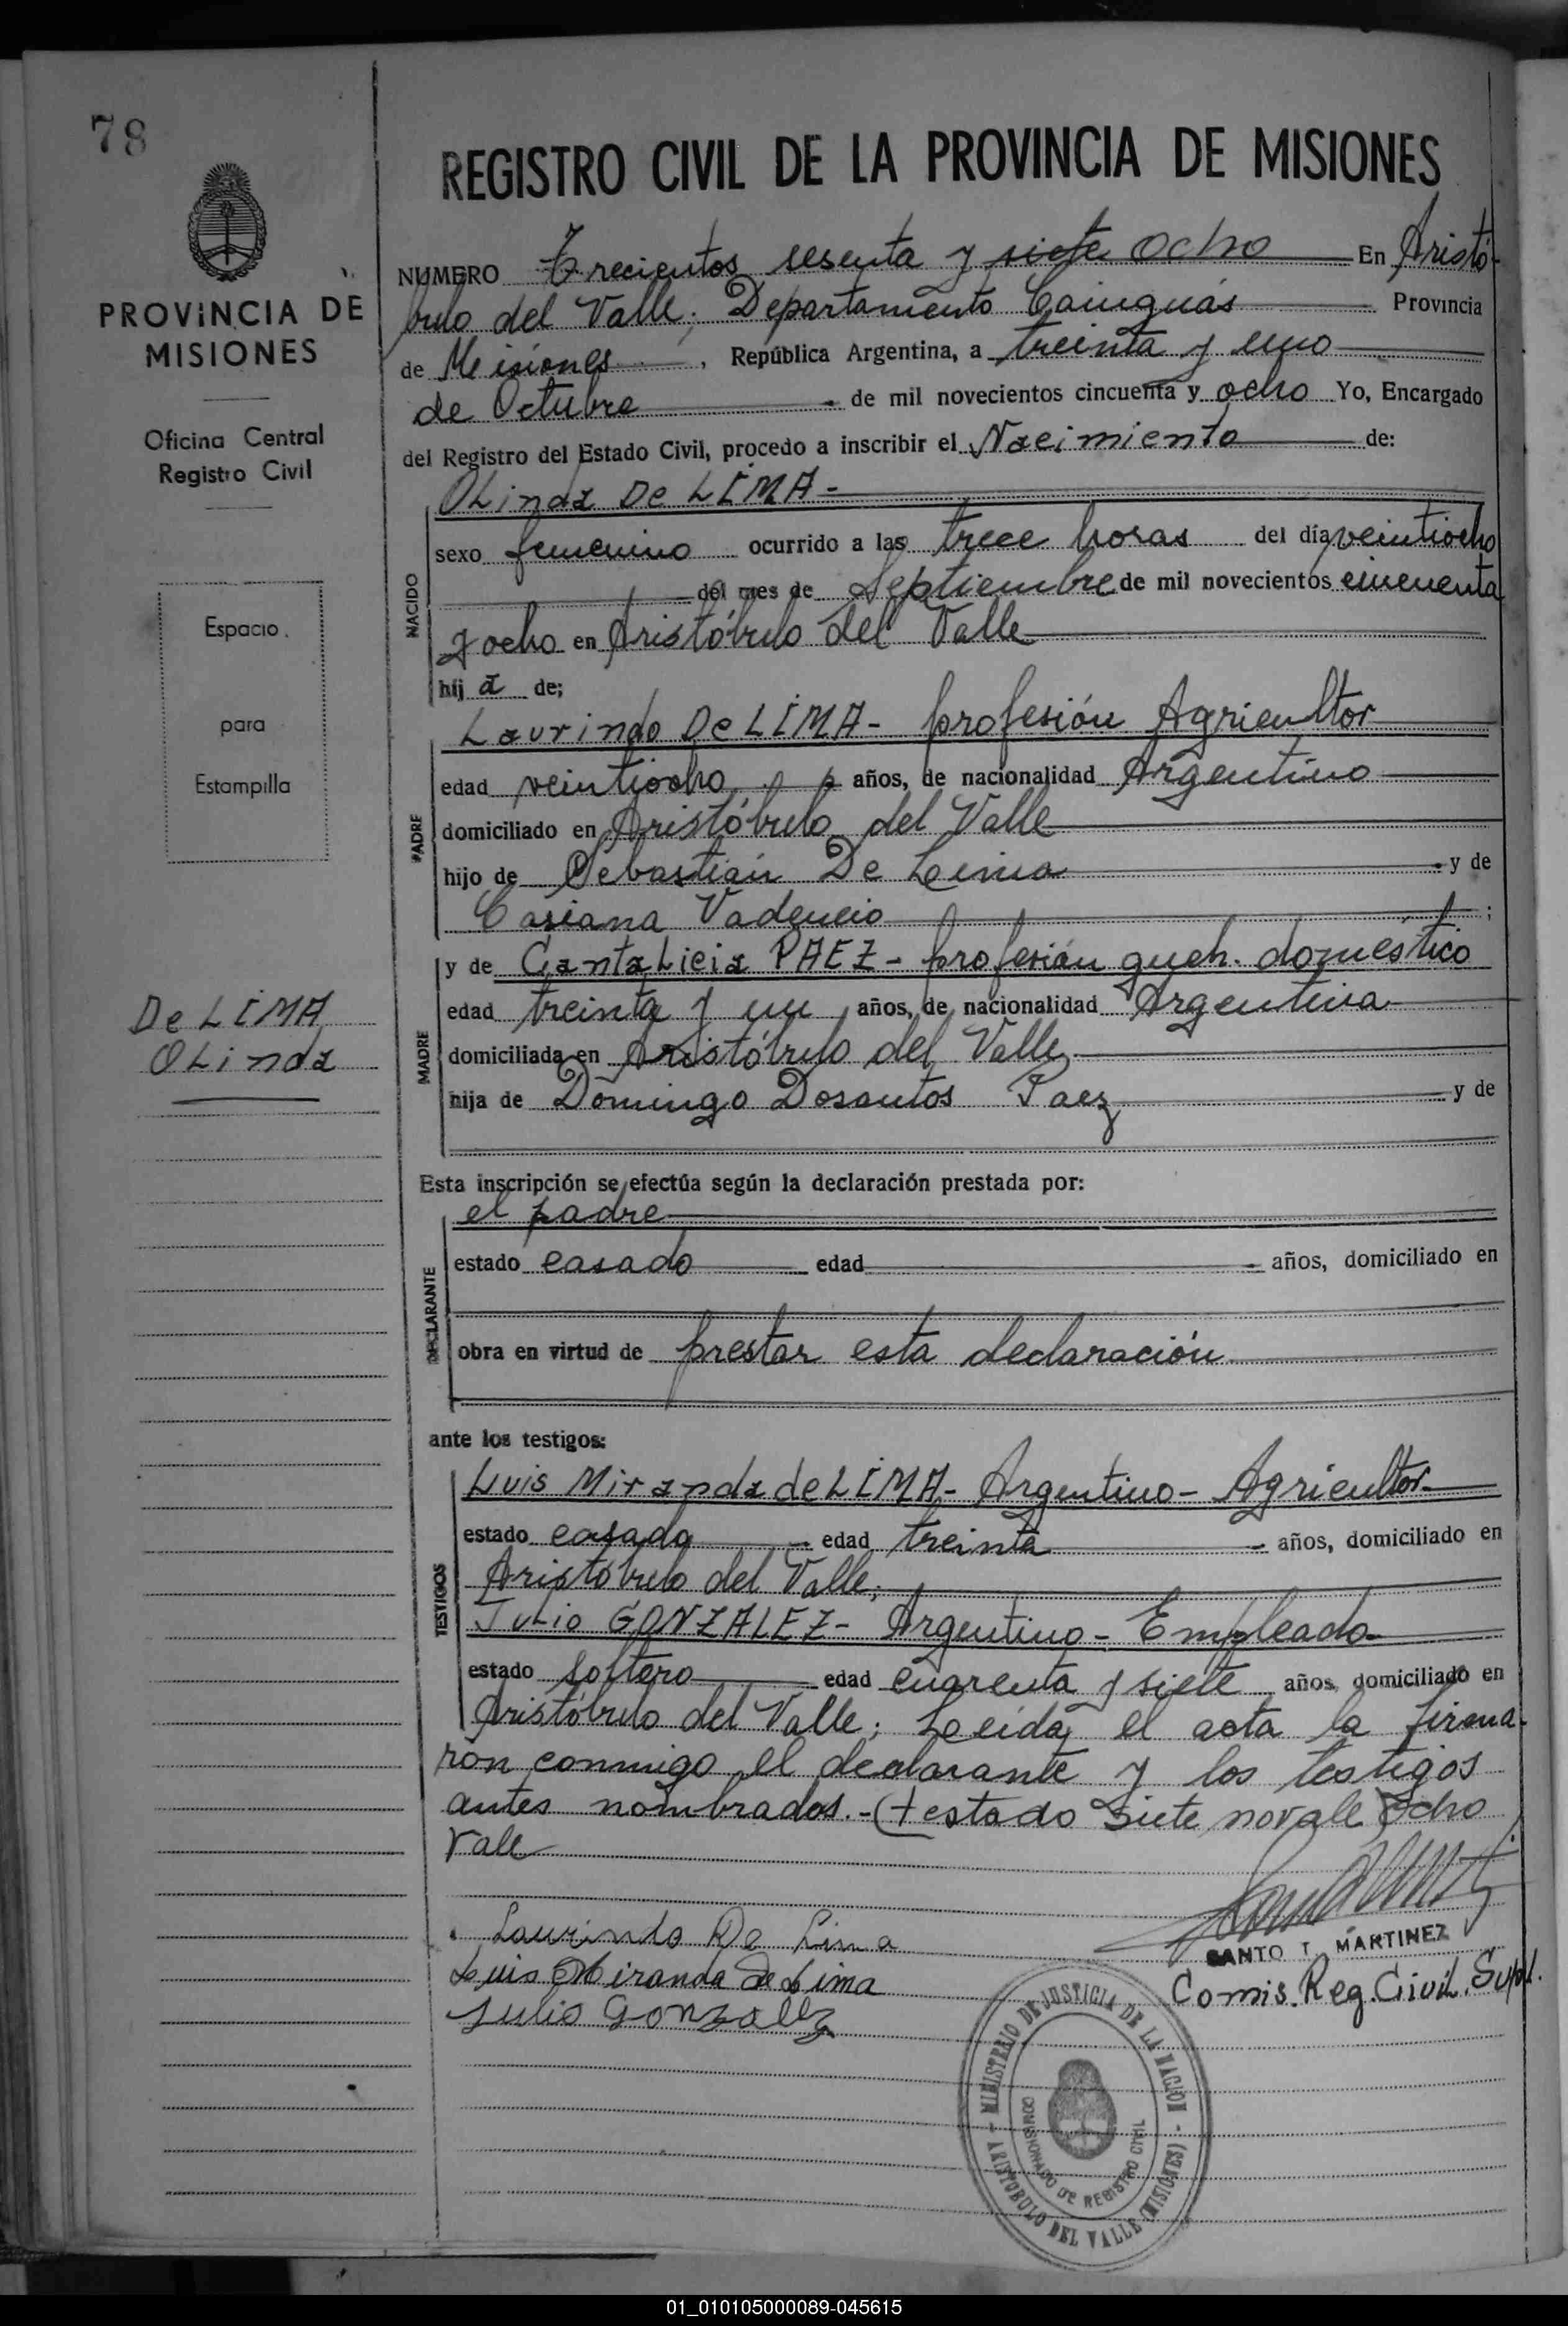 78
PROVINCIA DE
MISIONES
Oficina Central
Registro Civil
Espacio
para
Estampilla
De LIMA
OLinda
REGISTRO CIVIL DE LA PROVINCIA DE MISIONES
NUMERO Trecientos sesenta y siete ocho En Aristó-
bulo del Valle; Departamento Cainguás Provincia
de Misiones, República Argentina, a treinta y uno
de Octubre de mil novecientos cincuenta y ocho Yo, Encargado
del Registro del Estado Civil, procedo a inscribir el Nacimiento de:
OLinda De LIMA-
NACIDO
sexo femenino ocurrido a las trece horas del día veintiocho
del mes de Septiembre de mil novecientos cincuenta
y ocho en Aristóbulo del Valle
hij a de;
PADRE
Laurindo De LIMA- profesión Agricultor
edad veintiocho años, de nacionalidad Argentino
domiciliado en Aristóbulo del Valle
hijo de Sebastián De Lima y de
Casiana Vadencio ;
MADRE
y de CantaLicia PAEZ- profesión queh. doméstico
edad treinta y un años, de nacionalidad Argentina
domiciliada en Aristóbulo del Valle
hija de Domingo Dosantos Paez y de
Esta inscripción se efectúa según la declaración prestada por:
el padre
DECLARANTE
estado casado edad años, domiciliado en
obra en virtud de prestar esta declaración
ante los testigos:
TESTIGOS
Luis Miranda de LIMA- Argentino- Agricultor-
estado casado edad treinta años, domiciliado en
Aristóbulo del Valle;
Julio GONZALEZ- Argentino- Empleado-
estado soltero edad cuarenta y siete años, domiciliado en
Aristóbulo del Valle; Leída el acta la firma-
ron conmigo el declarante y los testigos
antes nombrados.-(testado siete no vale ocho
vale
Laurindo De Lima
Luis Miranda De Lima
Julio Gonzalez
SANTO T. MARTINEZ
Comis. Reg. Civil. Supl.
MINISTERIO DE JUSTICIA DE LA NACION
COMISIONADO DE REGISTRO CIVIL
ARISTOBULO DEL VALLE (MISIONES)
01_010105000089-045615